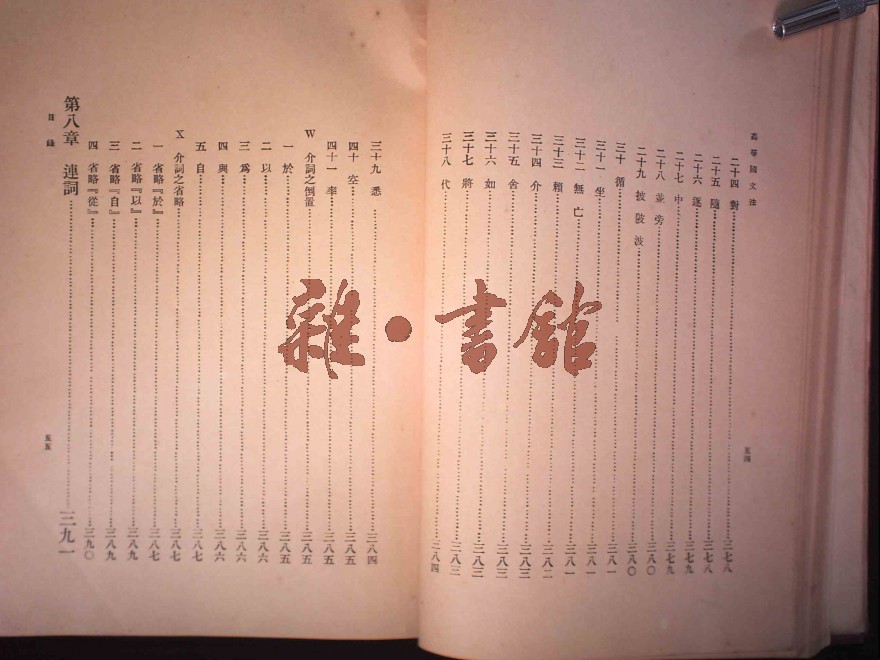 高等國文法
二十四 對……三七八
二十五 隨……三七八
二十六 逐……三七九
二十七 中……三七九
二十八 並旁……三八〇
二十九 披陂波……三八〇
三十 循……三八一
三十一 坐……三八一
三十二 無亡……三八一
三十三 賴……三八二
三十四 介……三八二
三十五 舍……三八三
三十六 如……三八三
三十七 將……三八三
三十八 代……三八四
五四
三十九 悉……三八四
四十 空……三八五
四十一 率……三八五
W 介詞之倒置……三八五
一 於……三八五
二 以……三八六
三 爲……三八六
四 與……三八六
五 自……三八七
X 介詞之省略……三八七
一 省略『於』……三八七
二 省略『以』……三八九
三 省略『自』……三八九
四 省略『從』……三九〇
第八章 連詞……三九一
目錄
五五
雜·書館